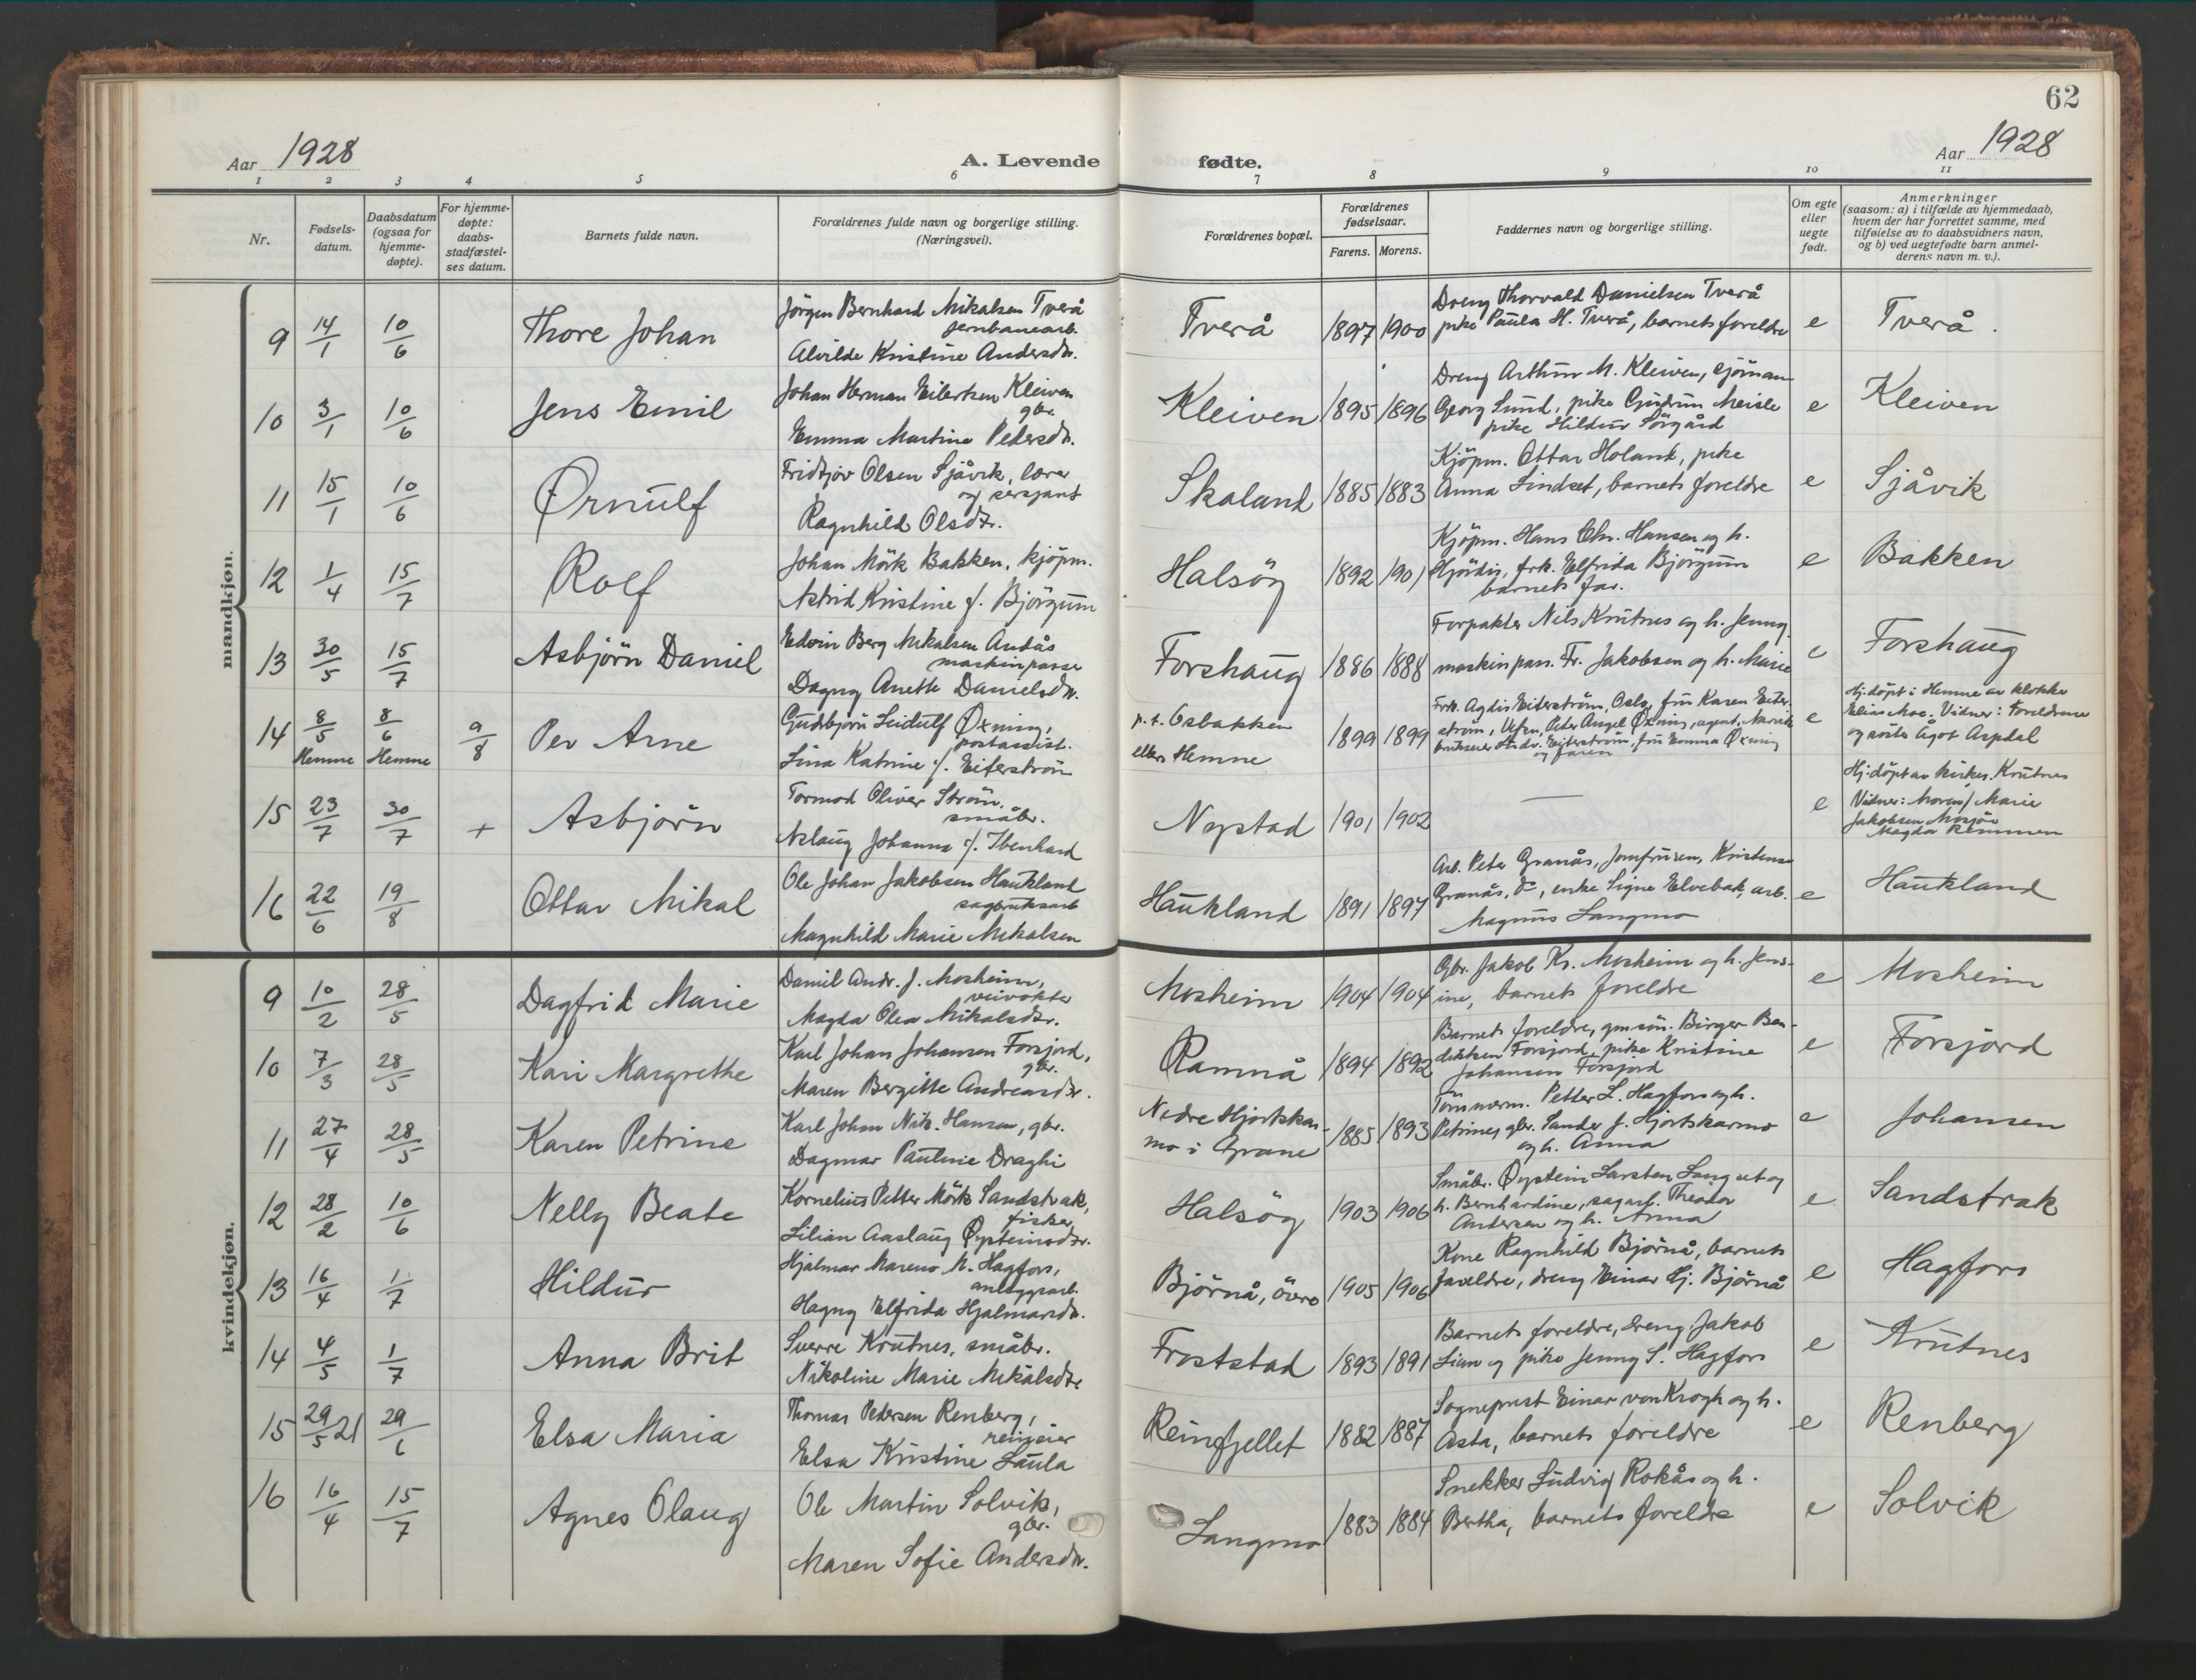 62
Aar 1928
A. Levende fødte.
Aar 1928
1 2 3 4 5 6 7 8 9 10 11
Nr.
Fødsels-
datum.
Daabsdatum
(ogsaa for
hjemme-
døpte).
For hjemme-
døpte:
daabs-
stadfæstel-
ses datum.
Barnets fulde navn.
Forældrenes fulde navn og borgerlige stilling.
(Næringsvei).
Forældrenes bopæl.
Forældrenes
fødselsaar.
Farens. Morens.
Faddernes navn og borgerlige stilling.
Om egte
eller
uegte
født.
Anmerkninger
(saasom: a) i tilfælde av hjemmedaab,
hvem der har forrettet samme, med
tilføielse av to daabsvidners navn,
og b) ved uegtefødte barn anmel-
derens navn m. v.).
mandkjøn.
9 14/1 10/6 Thore Johan
Jörgen Bernhard Mikalsen Tverå
jernbanearb.
Alvilde Kristine Andersdtr.
Tverå 1897 1900
Dreng Thorvald Danielsen Tverå
pike Paula H. Tverå, barnets foreldre
e Tverå.
10 3/1 10/6 Jens Emil
Johan Herman Eilertsen Kleiven
gbr.
Emma Martine Pedersdtr.
Kleiven 1895 1896
Dreng Arthur M. Kleiven, sjöman
Georg Lund, pike Gudrun Meisle
pike Hildur Sörgård
e Kleiven
11 15/1 10/6 Ørnulf
Fridtjov Olsen Sjåvik, lærer
og sersjant
Ragnhild Olsdtr.
Skaland 1885 1883
Kjöpm. Ottar Holand, pike
Anna Lindset, barnets foreldre
e Sjåvik
12 1/4 15/7 Rolf
Johan Mörk Bakken, kjöpm.
Astrid Kristine f. Björgum
Halsöy 1892 1901
Kjöpm. Hans Chr. Hansen og h.
Hjördis, frk. Elfrida Björgum
barnets far.
e Bakken
13 30/5 15/7 Asbjörn Daniel
Edvin Berg Mikalsen Andås
maskinpasser
Dagny Anette Danielsdtr.
Forshaug 1886 1888
Forpakter Nils Krutnes og h. Jenny
maskinpass. Fr. Jakobsen og h. Marie
e Forshaug
14 8/5 Hemne 8/6 Hemne 9/8 Per Arne
Gudbjörn Leidulf Øxning,
postassist.
Lina Katrine f. Eiterström
p.t. Osbakken
ellers Hemne
1899 1899
Frk. Agdis Eiterström, Oslo, fru Karen Eiter-
ström, Vefsn, Peder Angel Øxning, agent, Narvik
Andr. Eiterström, fru Emma Øxning
og faren
e
Hj.döpt i Hemne av klokker
Elias Moe. Vidner: Foreldrene
og Ågot Aspdal
15 23/7 30/7 + Asbjörn
Tormod Oliver Ström.
småbr.
Aslaug Johanna f. Ibenhard
Nystad 1901 1902
—
e
Hj.döpt av kirkes. Krutnes
Vidner: Moren/ Marie
Jakobsen Mosjöen
Magda Remmen
16 22/6 19/8 Ottar Mikal
Ole Johan Jakobsen Haukland
sagbruksarb
Magnhild Marie Mikalsen
Haukland 1891 1897
Arb. Peter Granås, Jomfruen, Kristense
Granås, do, enke Signe Elvebak, arb.
Magnus Langmo
e Haukland
kvindekjøn.
9 10/2 28/5 Dagfrid Marie
Daniel Andr. J. Mosheim,
veivokter
Magda Olea Mikalsdtr.
Mosheim 1904 1904
Gbr. Jakob Kr. Mosheim og h. Jens-
ine, barnets foreldre
e Mosheim
10 7/3 28/5 Kari Margrethe
Karl Johan Johansen Forsjord,
gbr.
Maren Bergitte Andreasdtr.
Ramnå 1894 1892
Barnets foreldre, gmsön. Birger Ben-
diktsen Forsjord, pike Kristine
Johansen Forsjord
e Forsjord
11 27/4 28/5 Karen Petrine
Karl Johan Nik. Hansen, gbr.
Dagmar Pauline Draghi
Nedre Hjortskar-
mo i Grane
1885 1893
Tömmerm. Petter L. Hagfors og h.
Petrine, gbr. Sander J. Hjortskarmo
og h. Anna
e Johansen
12 28/2 10/6 Nelly Beate
Kornelius Petter Mörk Sandstrak,
fisker
Lilian Aaslaug Øysteinsdtr.
Halsöy 1903 1906
Småbr. Øystein Larsten Langset og
h. Bernhardine, sagarb. Theodor
Andersen og h. Anna
e Sandstrak
13 16/4 1/7 Hildur
Hjalmar Mareno M. Hagfors,
anleggsarb.
Hagny Elfrida Hjalmarsdtr.
Björnå, övre 1905 1906
Kone Ragnhild Björnå, barnets
foreldre, dreng Einar Hj. Björnå
e Hagfors
14 4/5 1/7 Anna Brit
Sverre Krutnes, småbr.
Nikoline Marie Mikalsdtr
Froststad 1893 1891
Barnets foreldre, dreng Jakob
Lien og pike Jenny S. Hagfors
e Krutnes
15 29/5 21 29/6 Elsa Maria
Thomas Pedersen Renberg,
reineier
Elsa Kristine Laula
Reinfjellet 1882 1887
Sogneprest Einar von Krogh og h.
Asta, barnets foreldre
e Renberg
16 16/4 15/7 Agnes Olaug
Ole Martin Solvik,
gbr.
Maren Sofie Andersdtr.
Langmo 1883 1884
Snekker Ludvig Rokås og h.
Bertha, barnets foreldre
e Solvik